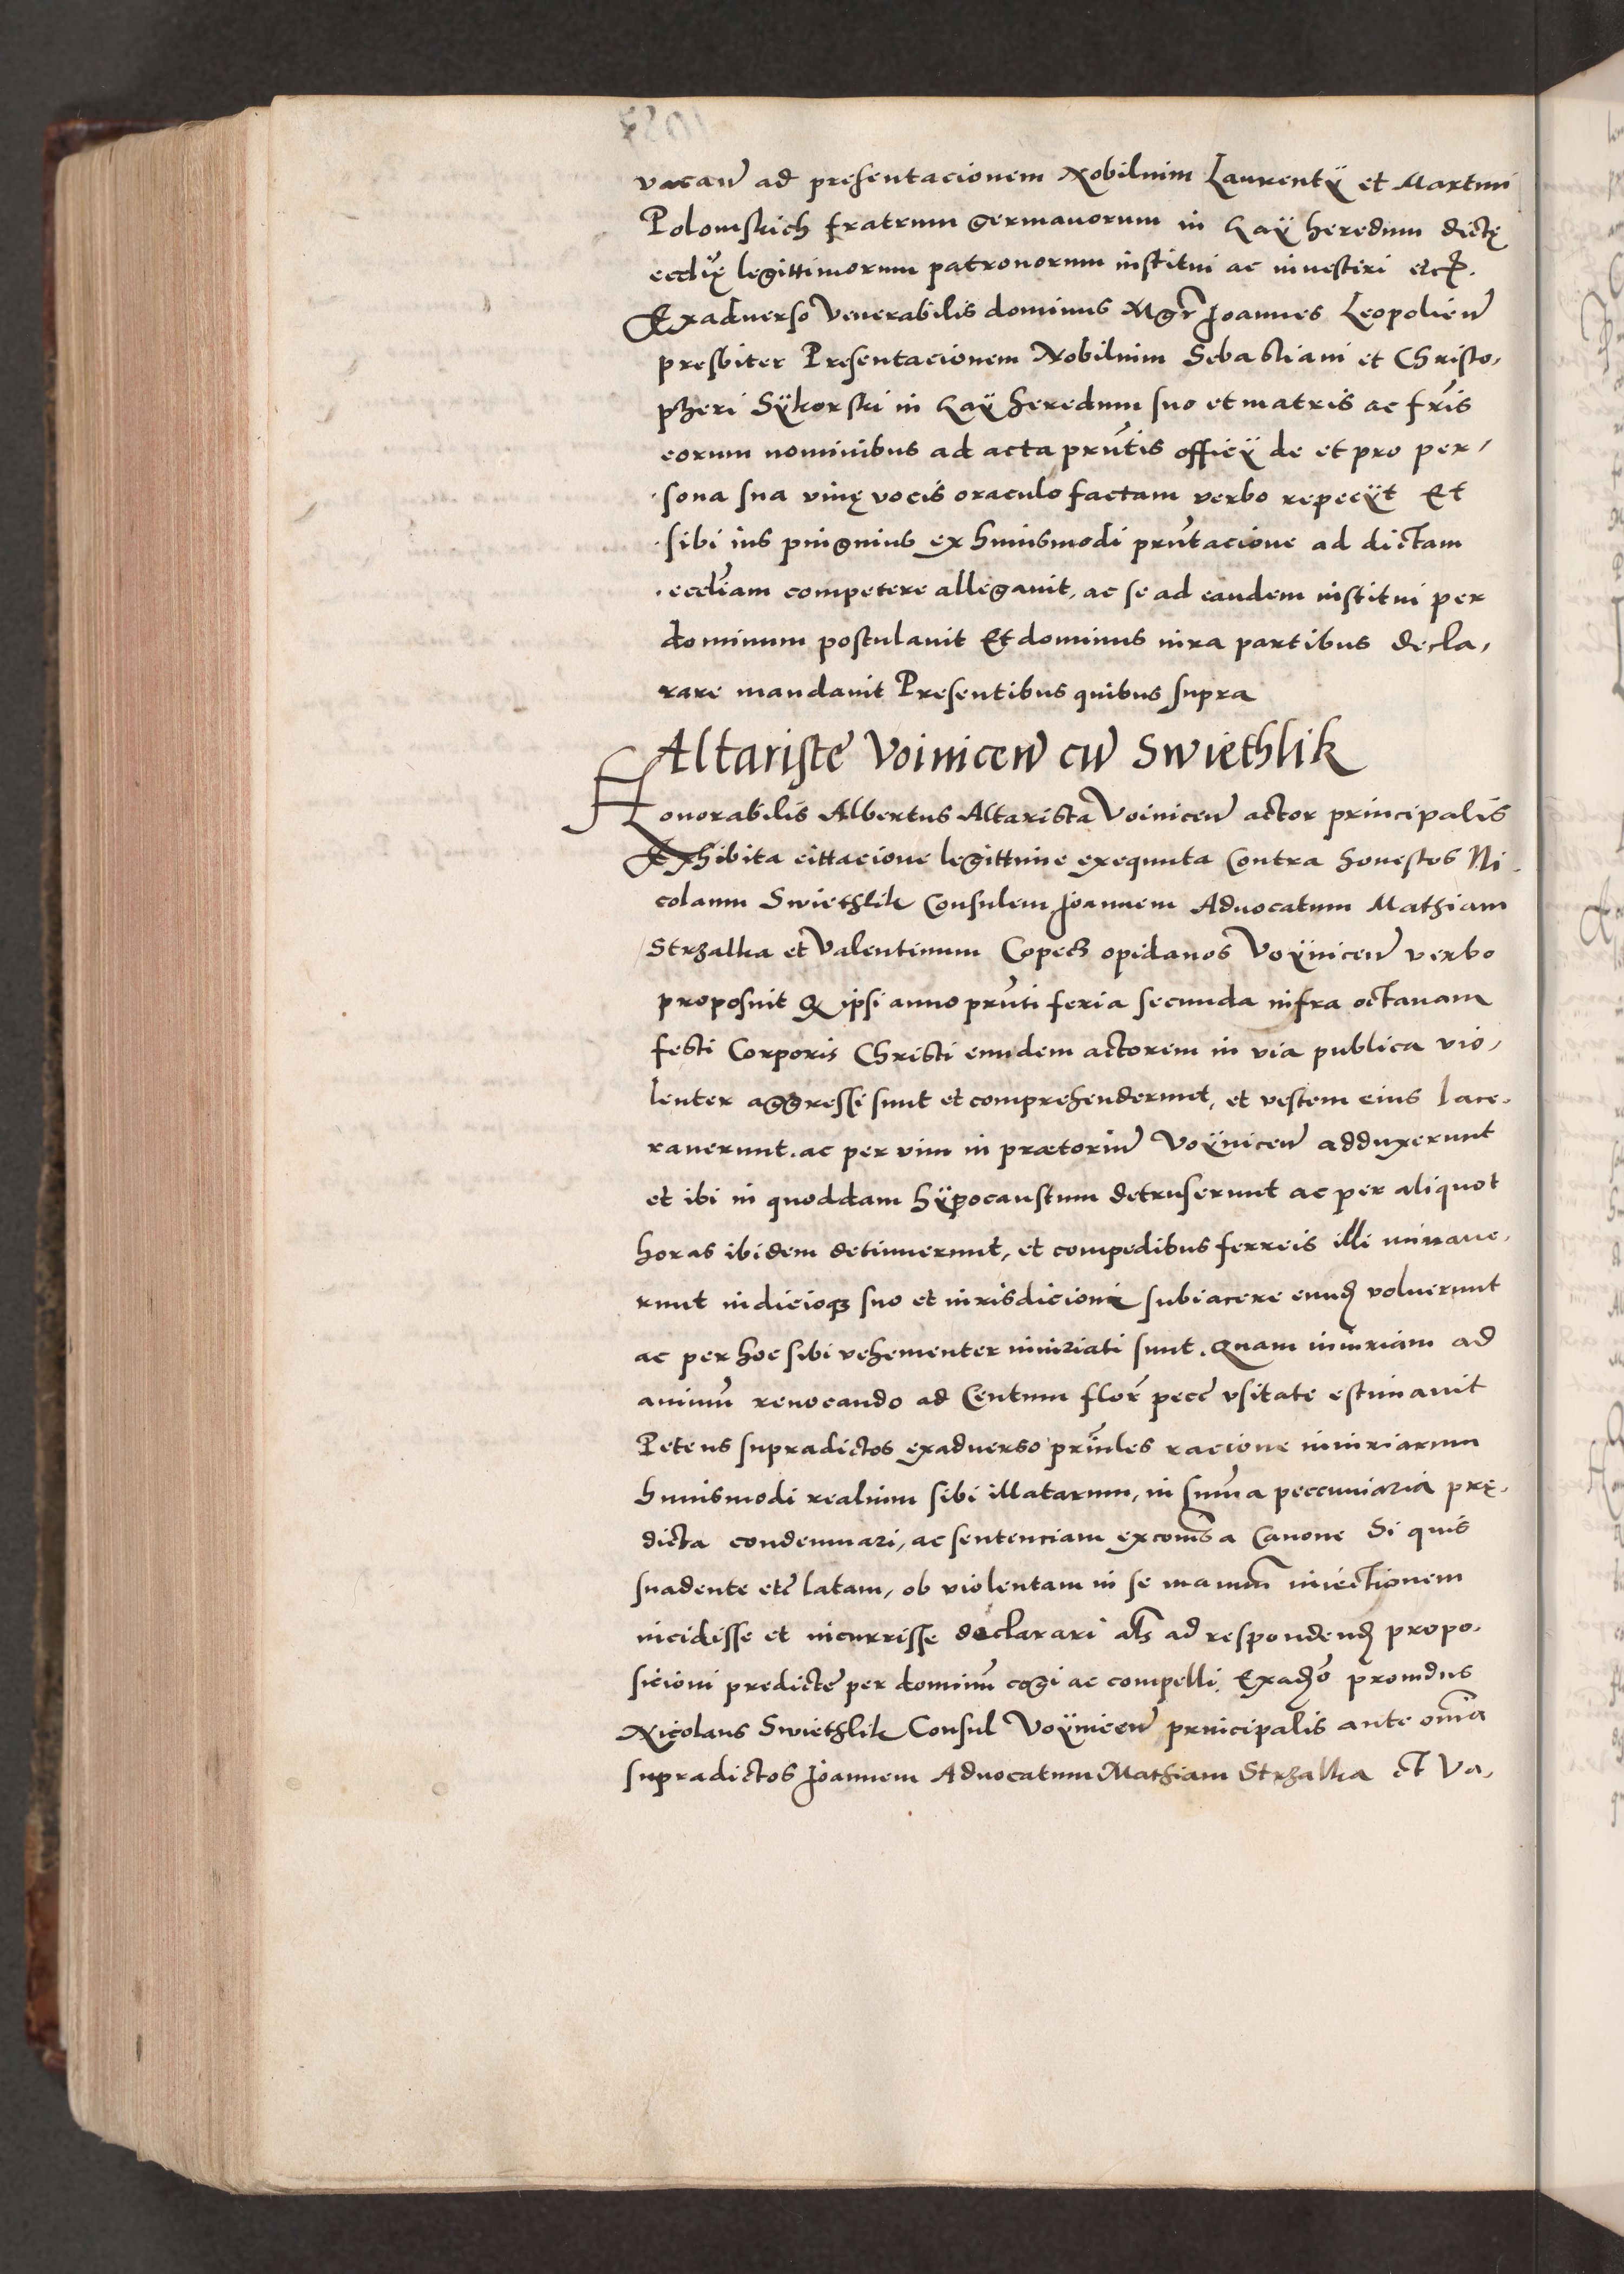 vacań ad presentacionem Nobilium Laurentÿ et Martini
Polomskich fratrum germanorum in Gaÿ heredum dictę
eccl̃ię legittimorum patronorum institui ac inuestiri etc̃.
Exaduerso Venerabilis dominus Mgr̃ Joannes Leopolień
presbiter Presentacionem Nobilium Sebastiani et Christo,
pheri Sÿkorski in Gaÿ heredum suo et matris ac fr̃is
eorum nominibus ad acta prñtis officÿ de et pro per,
sona sua viuę vocis oraculo factam verbo repecÿt Et
sibi ius pinguius ex huiusmodi prñtacione ad dictam
eccl̃iam competere allegauit, ac se ad eandem institui per
dominum postulauit Et dominus iura partibus decla,
rare mandauit Presentibus quibus supra
Altariste Voiniceń cũ Swiethlik
Honorabilis Albertus Altarista Voiniceń actor principalis
Exhibita cittacione legittime exequuta Contra honestos Ni,
colaum Swiethlik Consulem Joannem Aduocatum Mathiam
Strzalka et Valentinum Copecz opidanos Voÿniceń verbo
proposuit Q ipsi anno prñti feria secunda infra octauam
festi Corporis Christi eundem actorem in via publica vio,
lenter aggressi sunt et comprehenderunt, et vestem eius lace,
rauerunt. ac per vim in prætoriũ Voÿniceń adduxerunt
et ibi in quoddam hÿpocaustum detruserunt ac per aliquot
horas ibidem detinuerunt, et compedibus ferreis illi minaue,
runt iudicioqз suo et iurisdicioni subiacere eund̃ voluerunt
ac per hoc sibi vehementer iniuriati sunt. Quam iniuriam ad
animũ reuocando ad Centum flor̃ pecc̃ vsitate estimauit
Petens supradictos exaduerso prĩnles racione iniuriarum
huiusmodi realium sibi illatarum, in sum̃a peccuniaria prę,
dicta condemnari, ac sentenciam excom̃s a Canone Si quis
suadente etc̃ latam, ob violentam in se manuũ iniectionem
incidisse et incurrisse declarari al̃s ad respondend̃ propo,
sicioni predicte per dominũ cogi ac compelli. Exad̃o prouidus
Nicolaus Swiethlik Consul Voÿniceń principalis ante om̃ia
supradictos Joannem Aduocatum Mathiam Strzalka et Va,